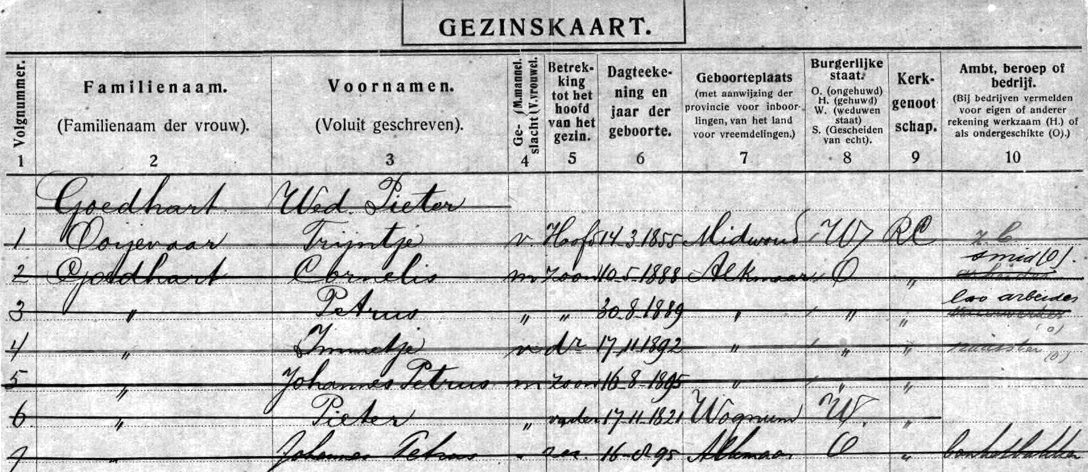 GEZINSKAART.
Volgnummer. Familienaam. (Familienaam der vrouw). Voornamen. (Voluit geschreven). Ge- (M.mannel. slacht (V.vrouwel. Betrek- king tot het hoofd van het gezin. Dagteeke- ning en jaar der geboorte. Geboorteplaats (met aanwijzing der provincie voor inboor- lingen, van het land voor vreemdelingen.) Burgerlijke staat. O. (ongehuwd) H. (gehuwd) W. (weduwen staat) S. (Gescheiden van echt). Kerk- genoot schap. Ambt, beroep of bedrijf. (Bij bedrijven vermelden voor eigen of anderer rekening werkzaam (H.) of als ondergeschikte (O).
1 2 3 4 5 6 7 8 9 10
Goedhart Wed. Pieter
1 Ooyevaar Trijntje v Hoofd 14-3-1855 Midwoud W RC z b
smid (O).
2 Goedhart Cornelis m zoon 10-5-1888 Alkmaar O " arbeider
los arbeider
3 " Petrus " " 30-8-1889 " " "
(O)
4 " Immetje v dr 17-11-1892 " " " (O)
5 " Johannes Petrus m zoon 16-8-1895 " " "
6 " Pieter " vader 17-11-1821 Wognum W. "
7 " Johannes Petrus " zn. 16-8-95 Alkmaar O " banketbakker